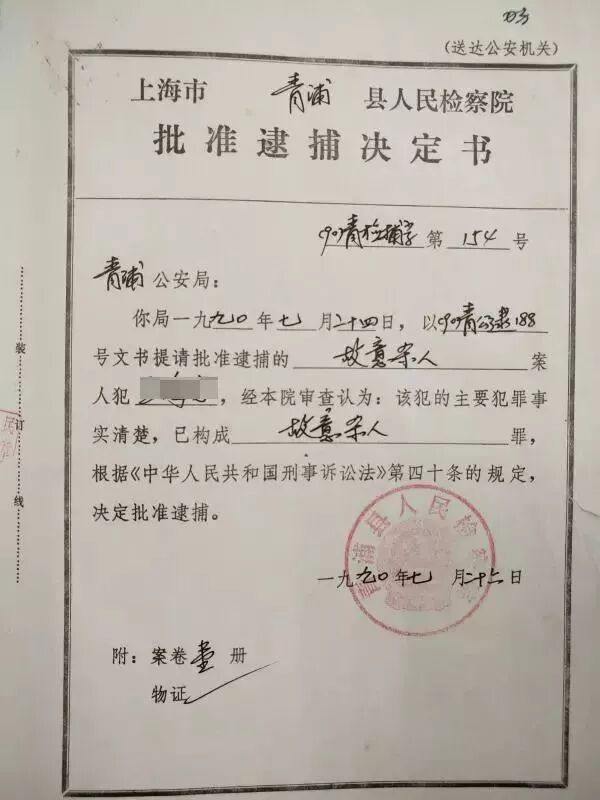 （送达公安机关）
上海市 青浦 县人民检察院
批准逮捕决定书
(90)青检捕字 第 154 号
青浦公安局：
你局一九九〇年七月二十四日，以(90)青公逮188
号文书提请批准逮捕的 故意杀人 案
人犯，经本院审查认为：该犯的主要犯罪事
实清楚，已构成 故意杀人 罪，
根据《中华人民共和国刑事诉讼法》第四十条的规定，
决定批准逮捕。
青浦县人民检察院
一九九〇年七月二十六日
附：案卷壹册
物证
装订线